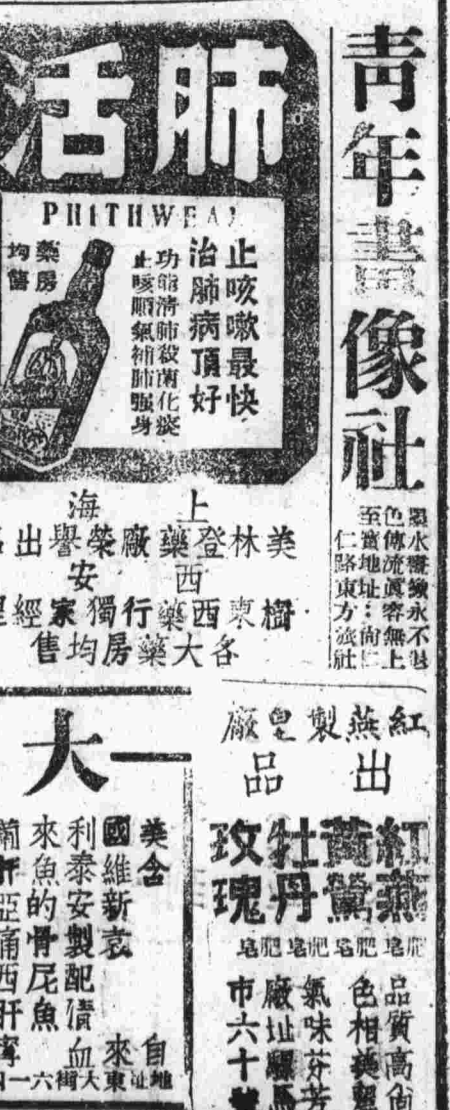 青年畫像社
墨水畫像永不退
色傳流眞容無上
至寶地址：尚仁
仁路東方旅社
肺活
PHITHWEAL
止咳嗽最快
治肺病頂好
功能清肺殺菌化痰
止咳順氣補肺强身
藥房
均售
上海
美林登藥廠榮譽出
西安
樹東西藥行獨家經理
各大藥房均售
紅燕製皂廠
出品
紅燕肥皂
黃鶯肥皂
牡丹肥皂
玫瑰
品質高尚
色相美麗
氣味芬芳
廠址騾馬
市六十號
一大
美含
國維新衰
利泰安製配債血
來魚的骨尼魚
葡肝亞痛西肝寧
自來
地址東大街六一四